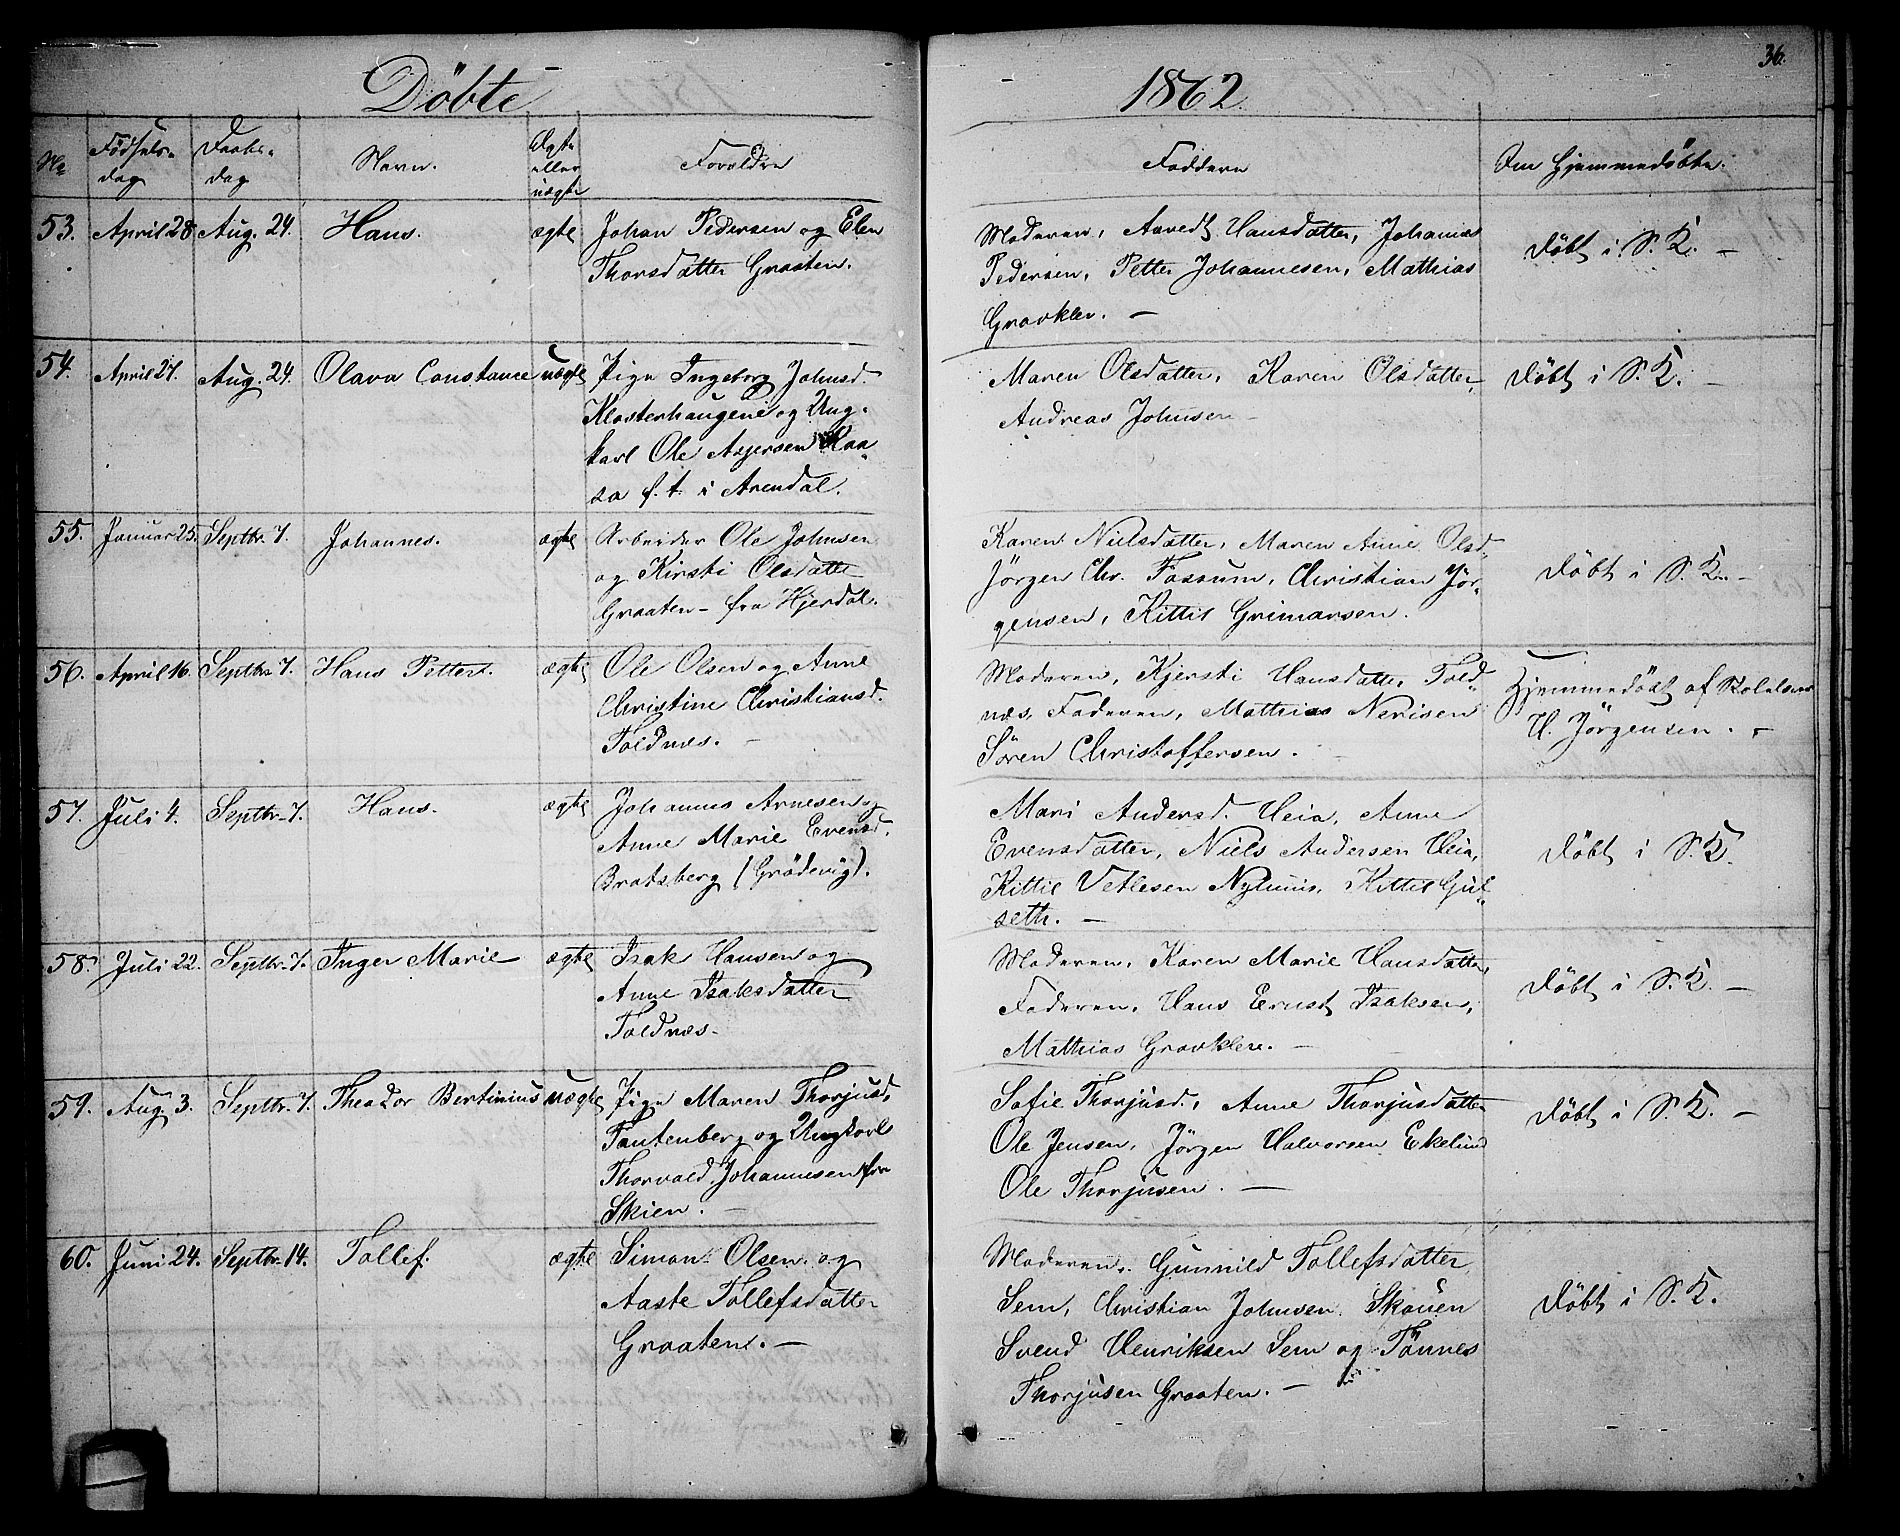 36.
Döbte
1862.
No
Födsels-
dag
Daabs-
dag
Navn.
Ægte
eller
uægte
Forældre
Faddere
Om Hjemmedöbte.
53. April 28. Aug. 24. Hans. ægte Johan Pedersen og Elen
Thorsdatter Graaten.
Moderen, Hansdatter, Johannes
Pedersen, Petter Johannesen, Mathias
Gravklev. —
Döbt i S. K. —
54. April 27. Aug. 24. Olava Constance uægte Pige Ingeborg Johnsd.
Klosterhaugene og Ung-
karl Ole Asjersen Raa-
sa f. t. i Arendal.
Maren Olsdatter, Karen Olsdatter,
Andreas Johnsen —
Döbt i S. K. —
55. Januar 25. Septbr. 7. Johannes. ægte Arbeider Ole Johnsen
og Kirsti Olsdatter
Graaten – fra Hjerdal.
Karen Nielsdatter, Maren Anne Olsd.
Jörgen Chr. Fossum, Christian Jör-
gensen, Kittil Grimarsen.
Döbt i S. K. —
56. April 16. Septbr. 7. Hans Petter. ægte Ole Olsen og Anne
Christine Christiansd.
Toldnæs. —
Moderen, Kjersti Hansdatter Told-
næs, Faderen, Mathias Nerisen
Sören Christoffersen.
Hjemmedöbt af
H. Jörgensen. —
57. Juli 4. Septbr. 7. Hans. ægte Johannes Arnesen og
Anne Marie Evensd.
Bratsberg (Grödevig).
Mari Andersd. Heia, Anne
Evensdatter, Niels Andersen Heia,
Kittil Vetlesen Nyhuus, Kittil Gul-
seth. —
Döbt i S. K.
58. Juli 22. Septbr. 7. Inger Marie ægte Isak Hansen og
Anne Isaksdatter
Toldnæs.
Moderen, Karen Marie Hansdatter,
Faderen, Hans Ernst Isaksen,
Mathias Gravklev. —
Döbt i S. K. —
59. Aug. 3. Septbr. 7. Theodor Bertinius uægte Pige Maren Thorjusd.
Fantenberg og Ungkarl
Thorvald Johannesen fra
Skien. —
Sofie Thorjusd., Anne Thorjusdatter
Ole Jensen, Jörgen Halvorsen Ekelund
Ole Thorjusen. —
Döbt i S. K. —
60. Juni 24. Septbr. 14. Tollef. ægte Simon Olsen og
Aaste Tollefsdatter
Graaten. —
Moderen, Gunnild Tollefsdatter
Sem, Christian Johnsen Skouen
Svend Henriksen Sem og Tönnes
Thorjusen Graaten. —
Döbt i S. K.